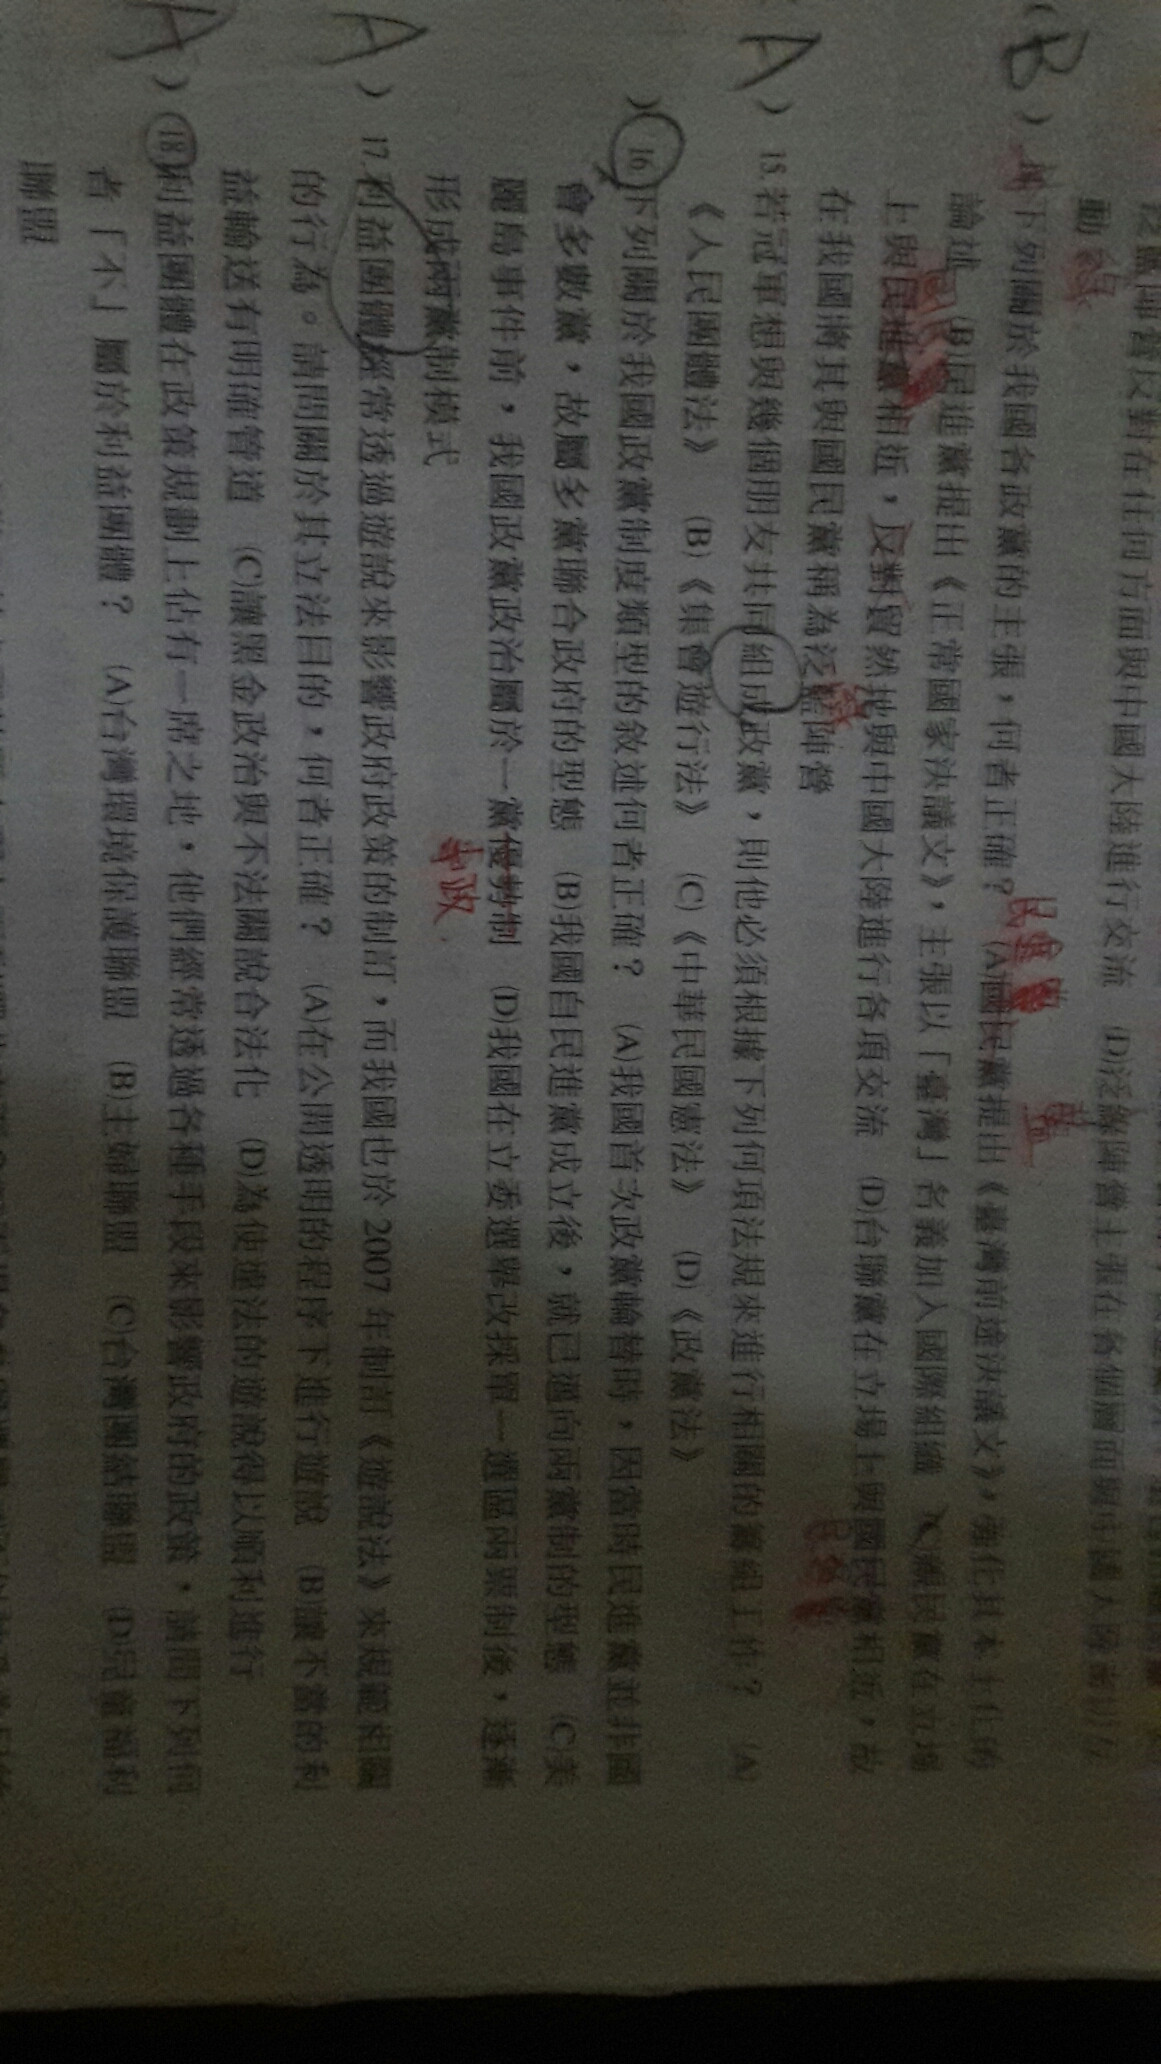 反對在任何方面與中國大陸進行交流 (D)泛綠陣營主張在各個層面與中國大陸密切互
動 綠
B ) 14.下列關於我國各政黨的主張，何者正確？ (A)國民黨提出《臺灣前途決議文》，強化其本土化的
民進黨
論述 (B)民進黨提出《正常國家決議文》，主張以「臺灣」名義加入國際組織 親民黨在立場
國民黨
上與民進黨相近，反對貿然地與中國大陸進行各項交流 (D)台聯黨在立場上與國民黨相近，故
民進黨
在我國將其與國民黨稱為泛藍陣營
綠
A ) 15.若冠軍想與幾個朋友共同組成政黨，則他必須根據下列何項法規來進行相關的籌組工作？ (A)
《人民團體法》 (B)《集會遊行法》 (C)《中華民國憲法》 (D)《政黨法》
) 16.下列關於我國政黨制度類型的敘述何者正確？ (A)我國首次政黨輪替時，因當時民進黨並非國
會多數黨，故屬多黨聯合政府的型態 (B)我國自民進黨成立後，就已邁向兩黨制的型態 (C)美
麗島事件前，我國政黨政治屬於一黨優勢制 (D)我國在立委選舉改採單一選區兩票制後，逐漸
專政
形成兩黨制模式
A ) 17.利益團體經常透過遊說來影響政府政策的制訂，而我國也於 2007 年制訂《遊說法》來規範相關
的行為。請問關於其立法目的，何者正確？ (A)在公開透明的程序下進行遊說 (B)讓不當的利
益輸送有明確管道 (C)讓黑金政治與不法關說合法化 (D)為使違法的遊說得以順利進行
A ) 18.利益團體在政策規劃上佔有一席之地，他們經常透過各種手段來影響政府的政策，請問下列何
者「不」屬於利益團體？ (A)台灣環境保護聯盟 (B)主婦聯盟 (C)台灣團結聯盟 (D)兒童福利
聯盟